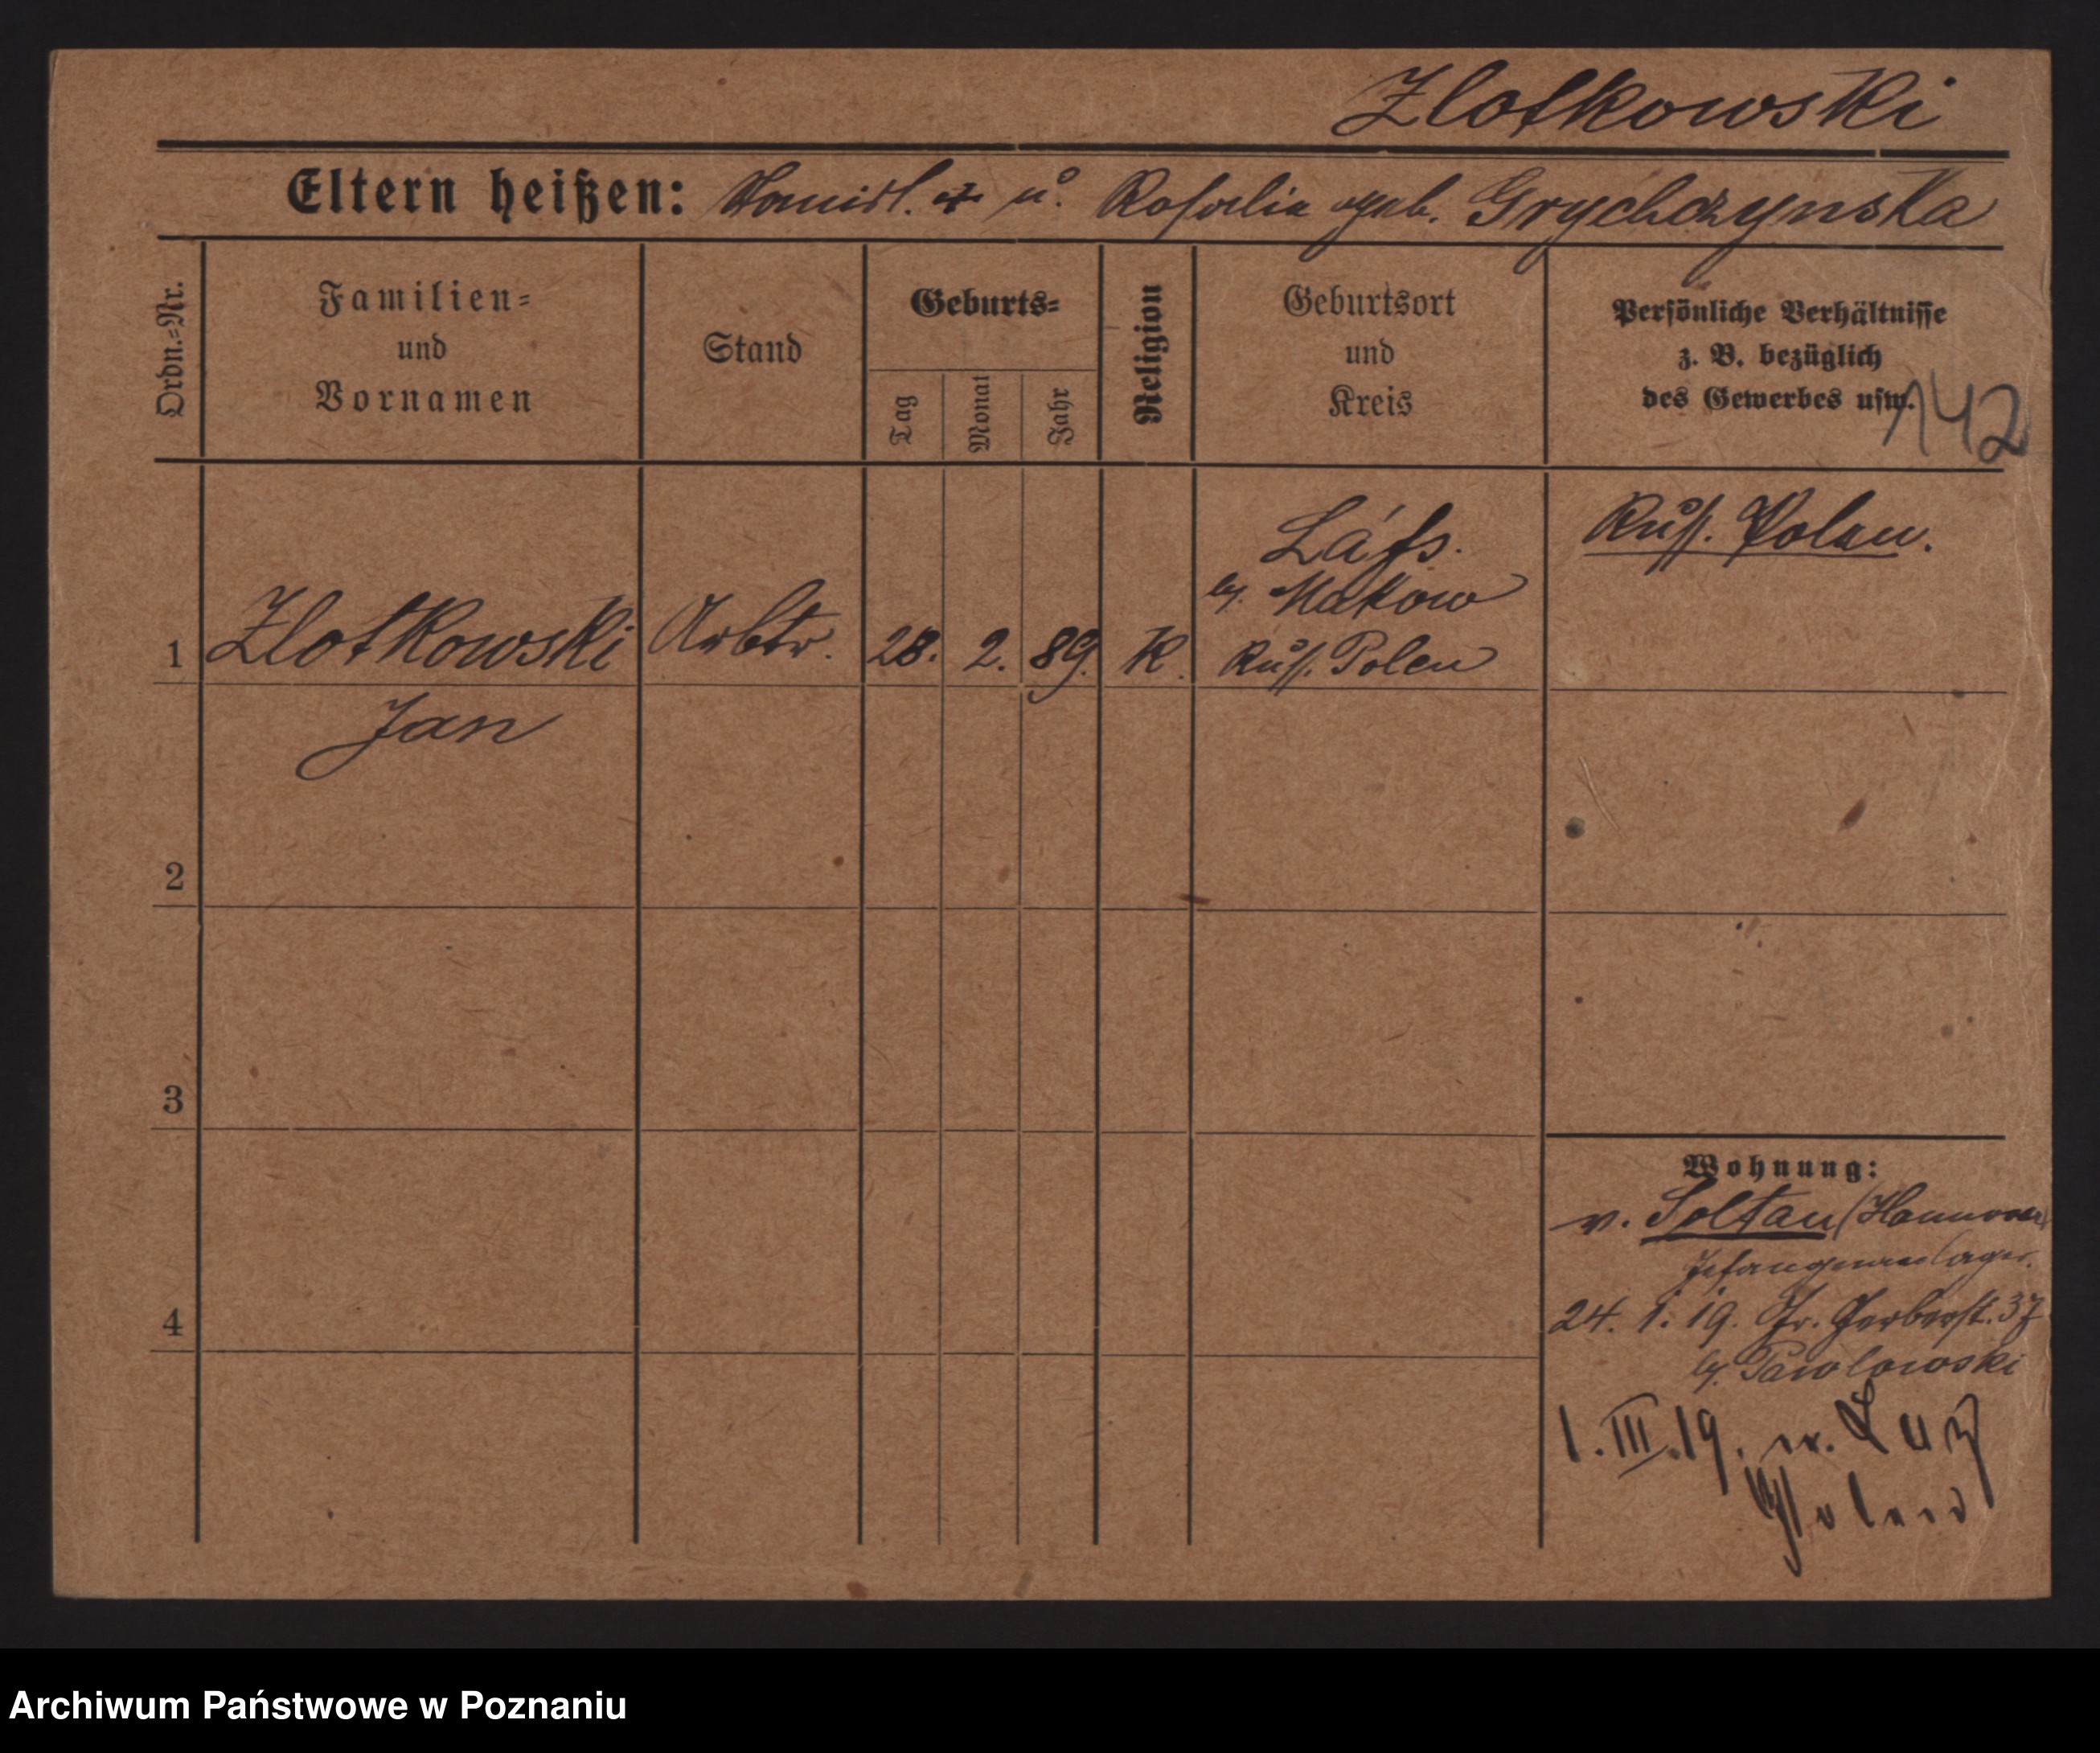 Zlotkowski
Eltern heißen: Stanisl. u. Rosalia geb. Grychczynska
Ordn.=Nr.
Familien=
und
Vornamen
Stand
Geburts=
Tag
Monat
Jahr
Religion
Geburtsort
und
Kreis
Persönliche Verhältnisse
z. B. bezüglich
des Gewerbes usw.
142
1
Zlotkowski
Jan
Arbtr.
28.
2.
89.
K.
by. Makow
Russ. Polen
Russ. Polen.
2
3
4
Wohnung:
v. Soltau (Hannover)
Gefangenenlager.
24. 1. 19. Gr. Gerberst. 37
by. Pawlowski
1. III. 19. n.
Polen
Archiwum Państwowe w Poznaniu